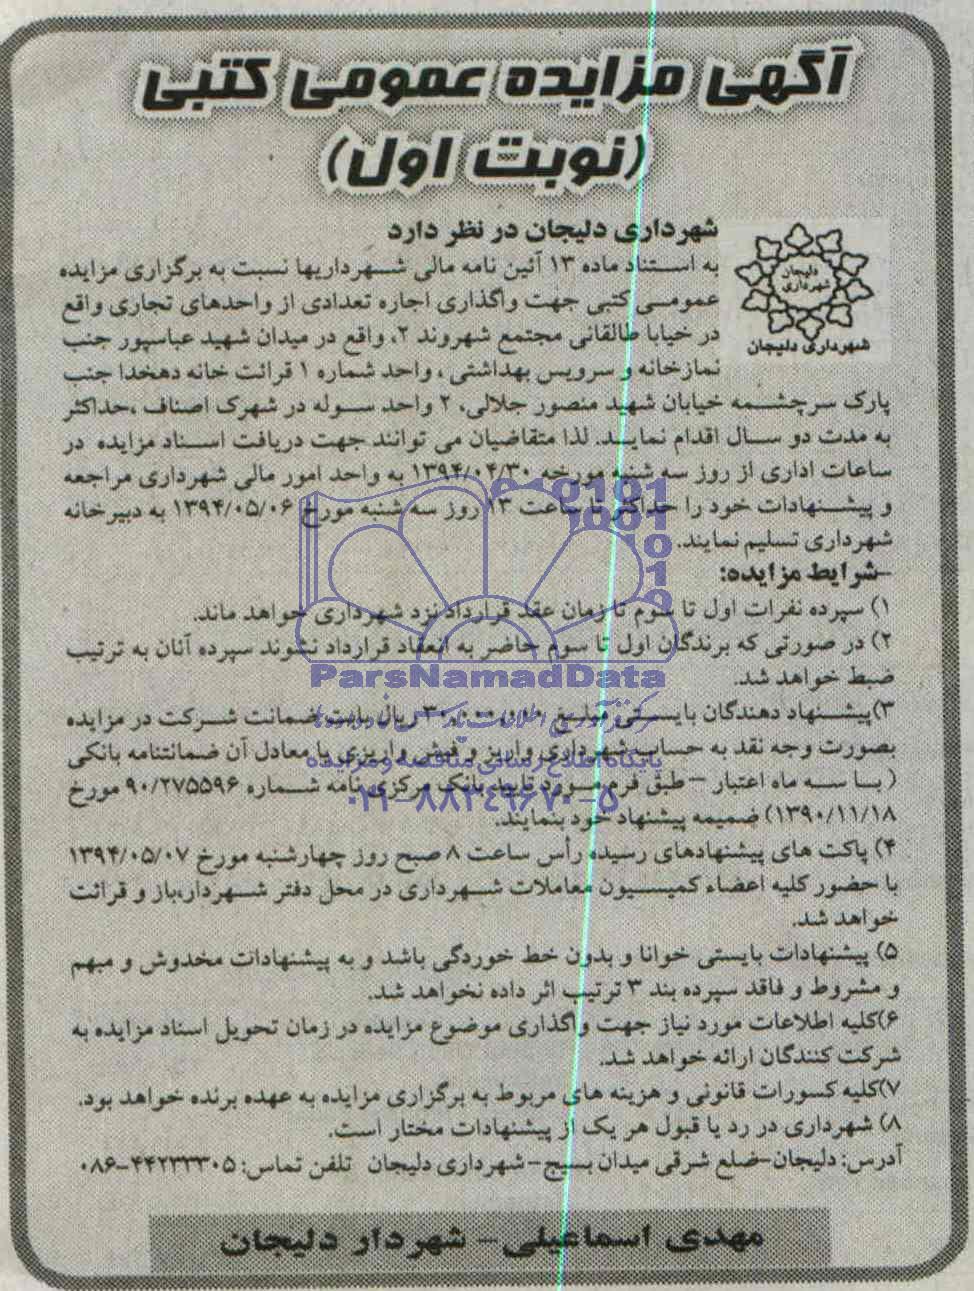 آگهی مزایده عمومی کتبی
(نوبت اول)
دلیجان
شهرداری
شهرداری دلیجان
شهرداری دلیجان در نظر دارد
به استناد ماده ۱۳ آئین نامه مالی شهرداریها نسبت به برگزاری مزایده
عمومی کتبی جهت واگذاری اجاره تعدادی از واحدهای تجاری واقع
در خیابا طالقانی مجتمع شهروند ۲، واقع در میدان شهید عباسپور جنب
نمازخانه و سرویس بهداشتی ، واحد شماره ۱ قرائت خانه دهخدا جنب
پارک سرچشمه خیابان شهید منصور جلالی، ۲ واحد سوله در شهرک اصناف ،حداکثر
به مدت دو سال اقدام نماید. لذا متقاضیان می توانند جهت دریافت اسناد مزایده در
ساعات اداری از روز سه شنبه مورخه ۱۳۹۴/۰۴/۳۰ به واحد امور مالی شهرداری مراجعه
و پیشنهادات خود را حداکثر تا ساعت ۱۳ روز سه شنبه مورخ ۱۳۹۴/۰۵/۰۶ به دبیرخانه
شهرداری تسلیم نمایند.
-شرایط مزایده:
۱) سپرده نفرات اول تا سوم تا زمان عقد قرارداد نزد شهرداری خواهد ماند.
۲) در صورتی که برندگان اول تا سوم حاضر به انعقاد قرارداد نشوند سپرده آنان به ترتیب
ضبط خواهد شد.
ParsNamadData
۳)پیشنهاد دهندگان بایستی مبلغ ریال بابت ضمانت شرکت در مزایده
بصورت وجه نقد به حساب شهرداری واریز و فیش واریزی یا معادل آن ضمانتنامه بانکی
پایگاه اطلاع رسانی مناقصه و مزایده
( با سه ماه اعتبار – طبق فرم مورد تایید بانک مرکزی نامه شماره ۹۰/۲۷۵۵۹۶ مورخ
۰۲۱-۸۸۳۴۹۶۷۰-۵
۱۳۹۰/۱۱/۱۸) ضمیمه پیشنهاد خود بنمایند.
۴) پاکت های پیشنهادهای رسیده رأس ساعت ۸ صبح روز چهارشنبه مورخ ۱۳۹۴/۰۵/۰۷
با حضور کلیه اعضاء کمیسیون معاملات شهرداری در محل دفتر شهردار،باز و قرائت
خواهد شد.
۵) پیشنهادات بایستی خوانا و بدون خط خوردگی باشد و به پیشنهادات مخدوش و مبهم
و مشروط و فاقد سپرده بند ۳ ترتیب اثر داده نخواهد شد.
۶)کلیه اطلاعات مورد نیاز جهت واگذاری موضوع مزایده در زمان تحویل اسناد مزایده به
شرکت کنندگان ارائه خواهد شد.
۷)کلیه کسورات قانونی و هزینه های مربوط به برگزاری مزایده به عهده برنده خواهد بود.
۸) شهرداری در رد یا قبول هر یک از پیشنهادات مختار است.
آدرس: دلیجان-ضلع شرقی میدان بسیج-شهرداری دلیجان تلفن تماس: ۰۸۶-۴۴۲۳۳۳۰۵
مهدی اسماعیلی- شهردار دلیجان